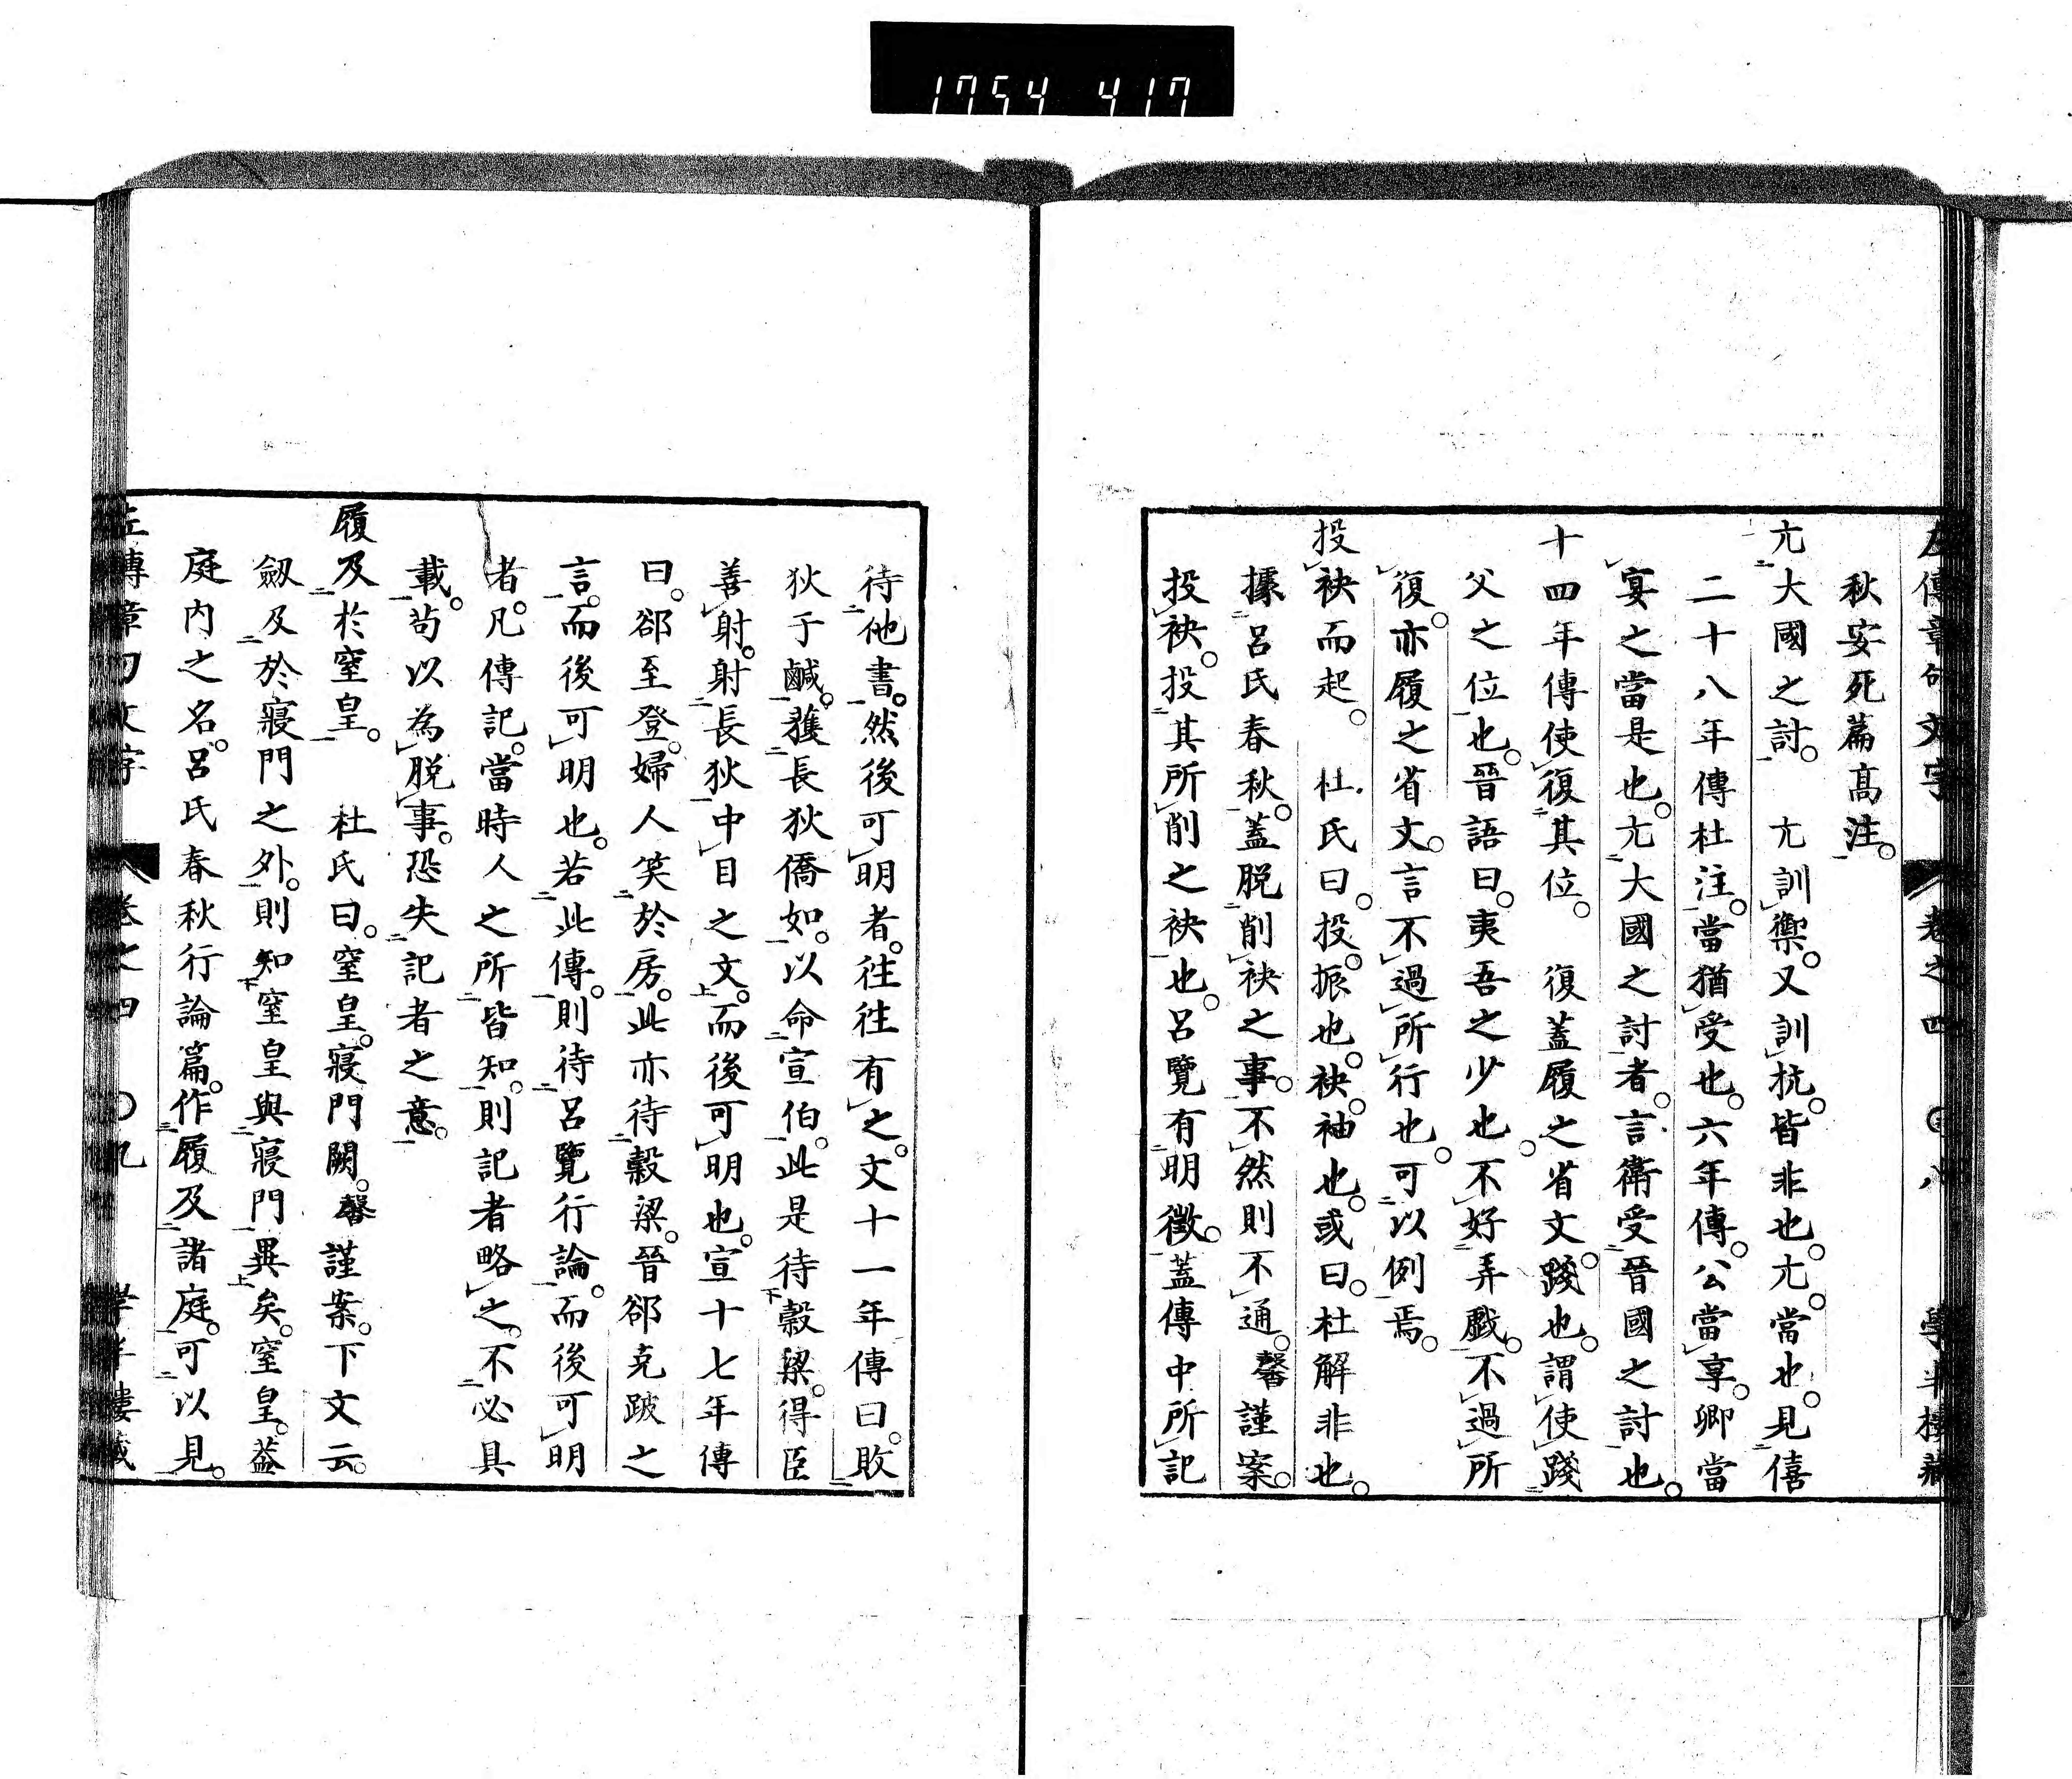 1754 417
左傳章句文字 卷之四 〇八 學半樓藏
秋安死篇高注。
亢大國之討。 亢訓禦。又訓抗。皆非也。亢。當也。見僖
二十八年傳杜注。當猶受也。六年傳。公當享。卿當
宴之當是也。亢大國之討者。言衛受晉國之討也。
十四年傳使復其位。 復蓋履之省文。踐也。謂使踐
父之位也。晉語曰。夷吾之少也。不好弄戲。不過所
復。亦履之省文。言不過所行也。可以例焉。
投袂而起。 杜氏曰。投。振也。袂。袖也。或曰。杜解非也。
據呂氏春秋。蓋脱削袂之事。不然則不通。馨謹案。
投袂。投其所削之袂也。呂覽有明徵。蓋傳中所記
待他書。然後可明者。往往有之。文十一年傳曰。敗
狄于鹹。獲長狄僑如。以命宣伯。此是待穀梁。得臣
善射。射長狄中目之文。而後可明也。宣十七年傳
曰。郤至登。婦人笑於房。此亦待穀梁。晉郤克跛之
言。而後可明也。若此傳。則待呂覽行論。而後可明
者。凡傳記。當時人之所皆知。則記者略之。不必具
載。苟以為脱事。恐失記者之意。
履及於窒皇。 杜氏曰。窒皇。寢門闕。馨謹案。下文云。
劒及於寢門之外。則知窒皇與寢門異矣。窒皇。蓋
庭内之名。呂氏春秋行論篇。作履及諸庭。可以見。
左傳章句文字 卷之四 〇九 學半樓藏